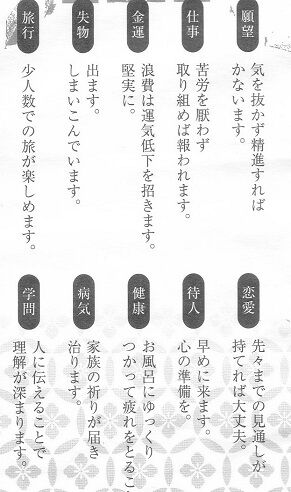 願望
気を抜かず精進すれば
かないます。
仕事
苦労を厭わず
取り組めば報われます。
金運
浪費は運気低下を招きます。
堅実に。
失物
出ます。
しまいこんでいます。
旅行
少人数での旅が楽しめます。
恋愛
先々までの見通しが
持てれば大丈夫。
待人
早めに来ます。
心の準備を。
健康
お風呂にゆっくり
つかって疲れをとること
病気
家族の祈りが届き
治ります。
学問
人に伝えることで
理解が深まります。